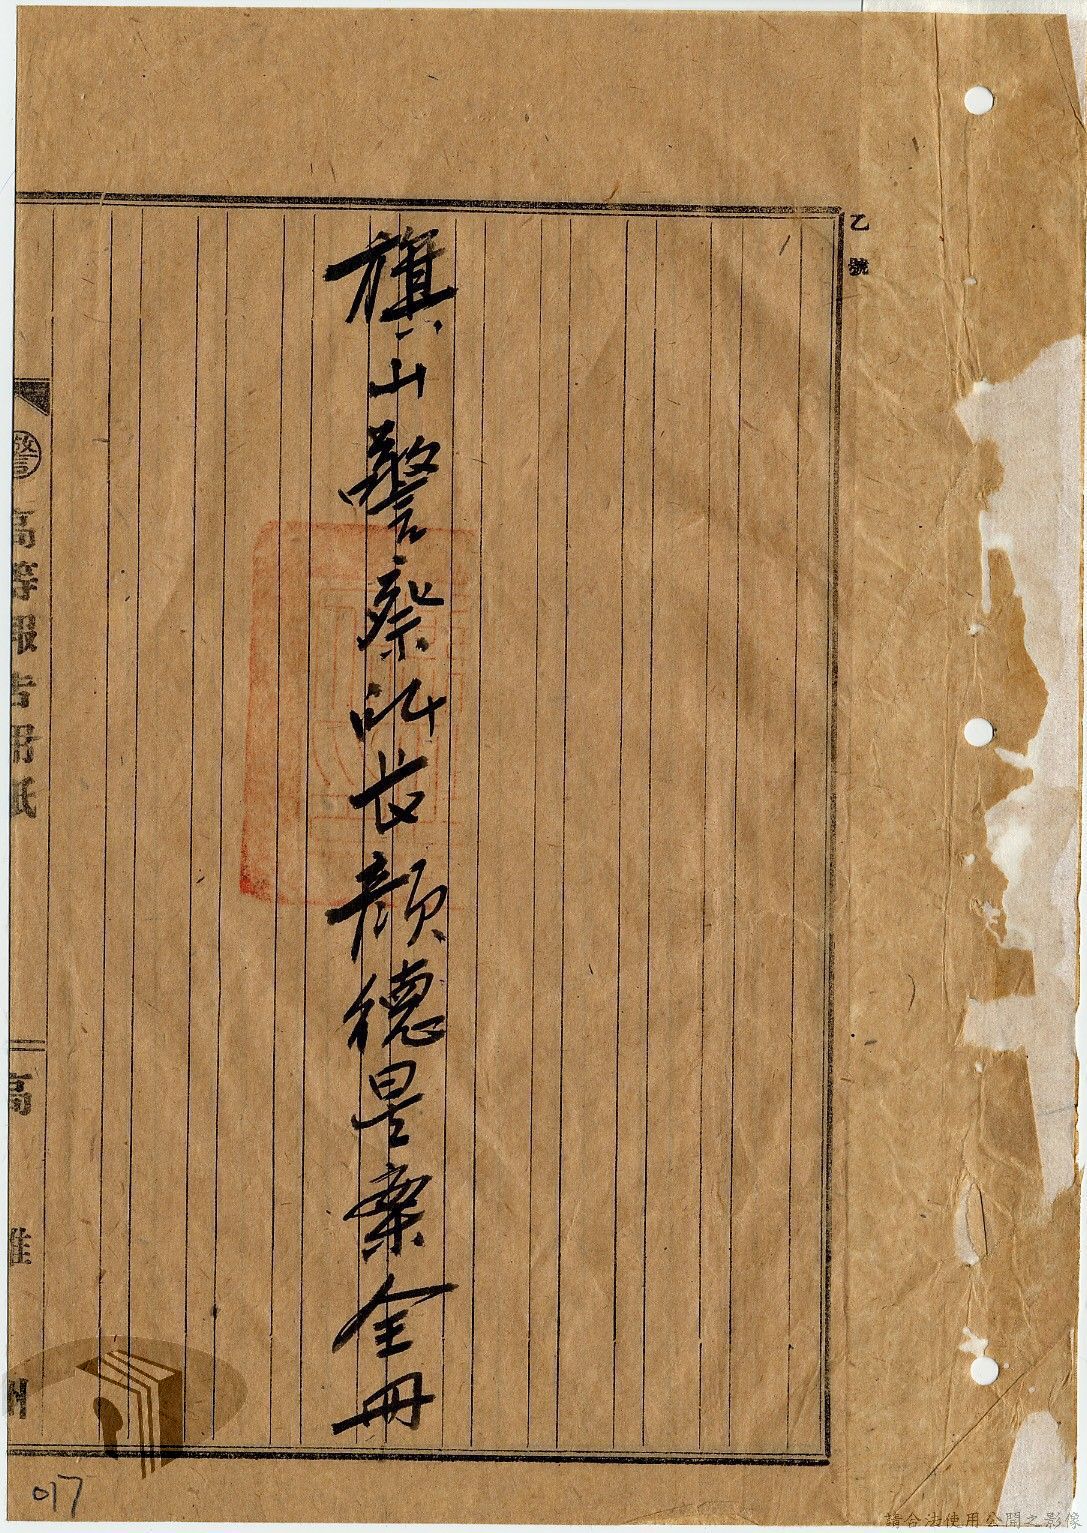 乙號
旗山警察所長顏德昰案全冊
警
高等報告用紙
高雄州
017
請合法使用公開之影像